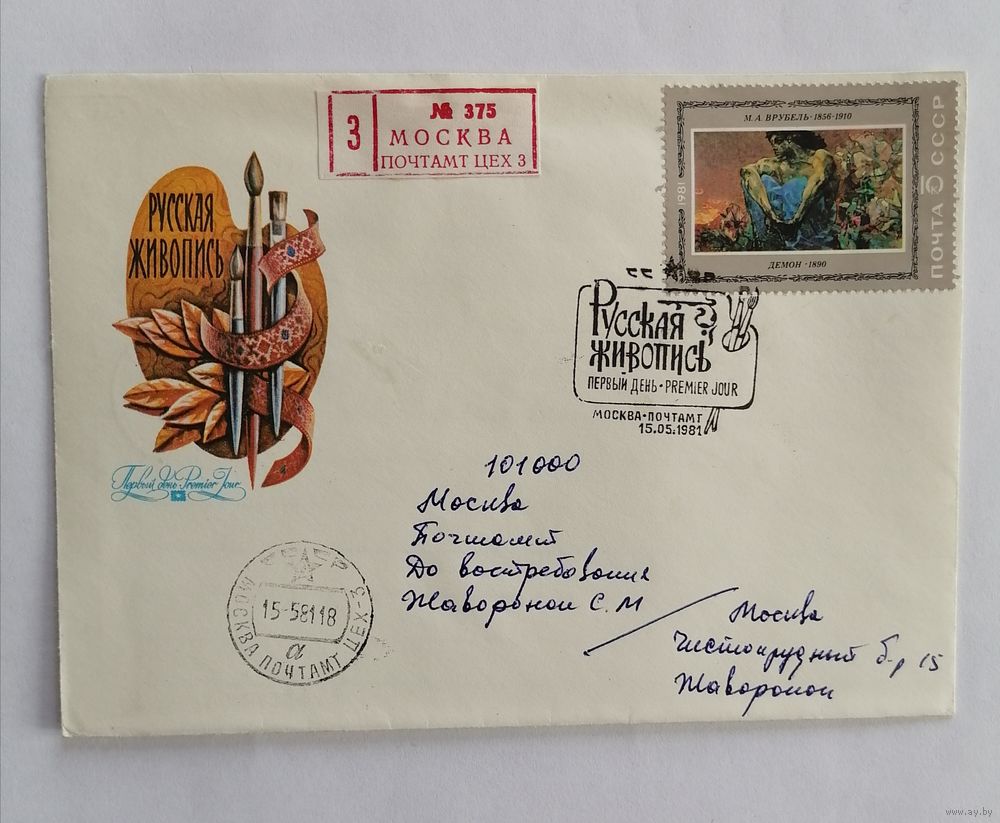 3
№ 375
МОСКВА
ПОЧТАМТ ЦЕХ 3
М.А. ВРУБЕЛЬ·1856-1910
1981
ДЕМОН·1890
10
ПОЧТА СССР
РУССКАЯ
ЖИВОПИСЬ
Первый день Premier Jour
РУССКАЯ
ЖИВОПИСЬ
ПЕРВЫЙ ДЕНЬ·PREMIER JOUR
МОСКВА·ПОЧТАМТ
15.05.1981
101000
Москва
Почтамт
До востребования
Жаворонок С. М
Москва
Чистопрудный б-р 15
Жаворонок
СССР
15-58118
а
МОСКВА ПОЧТАМТ ЦЕХ-3
www.ay.by